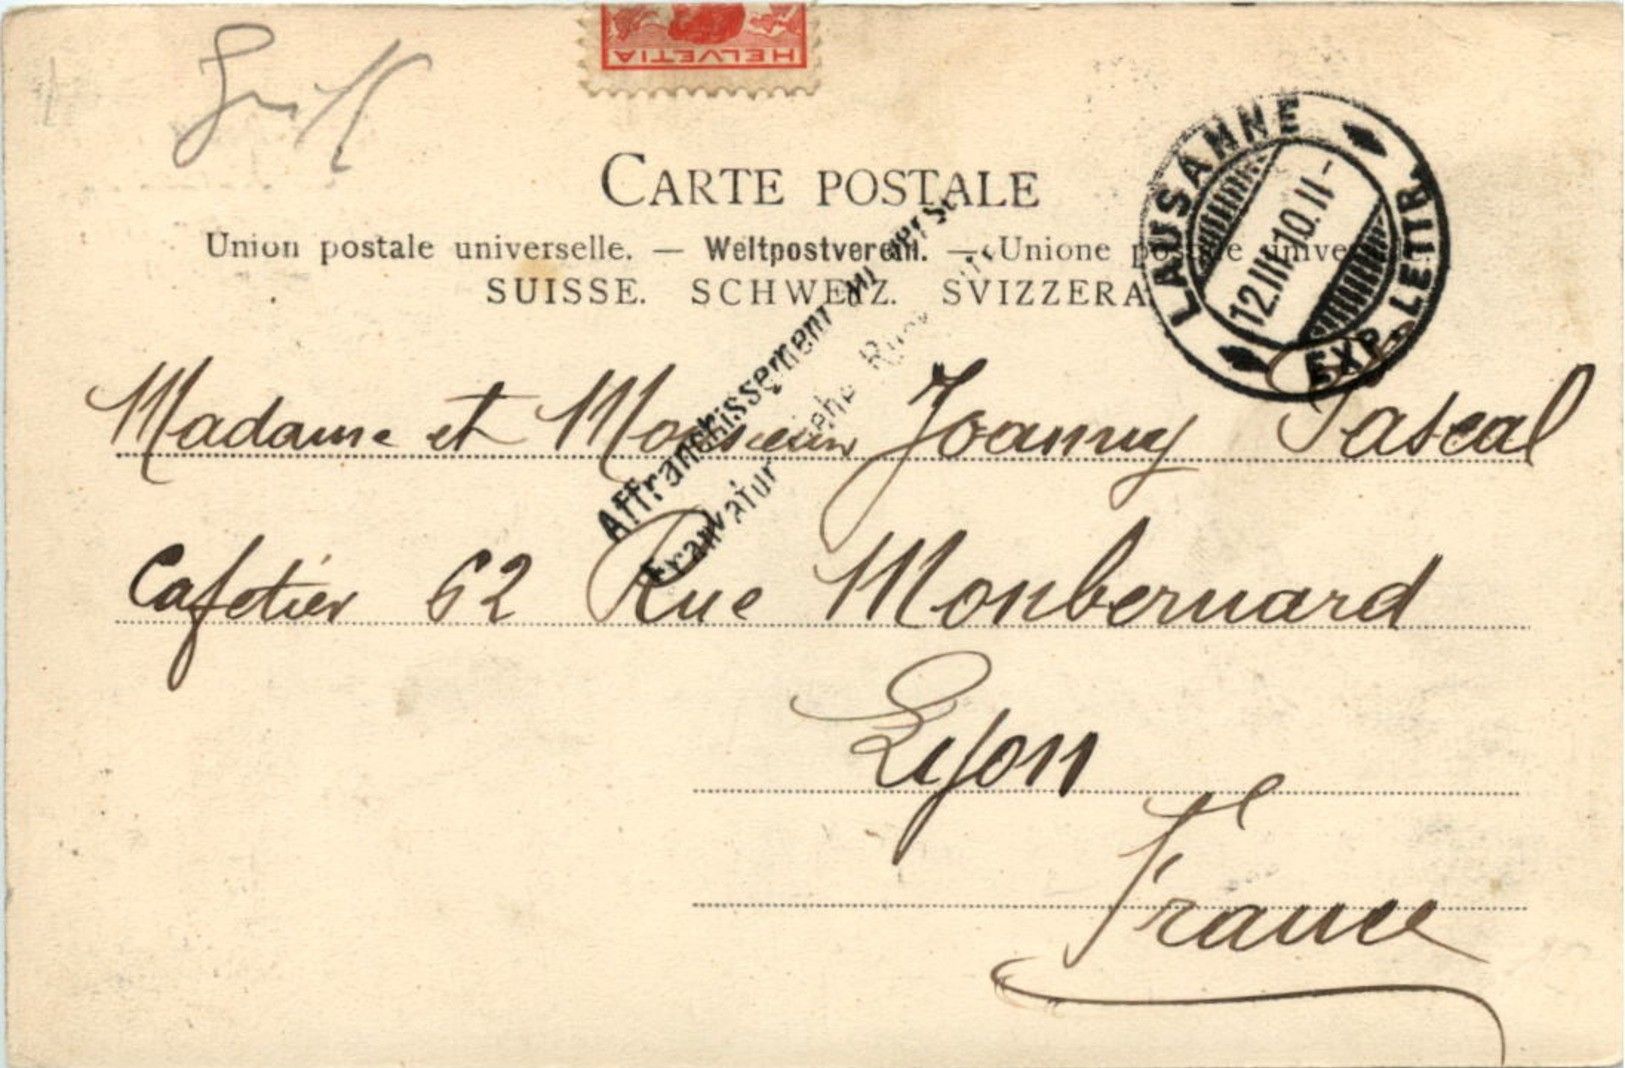 HELVETIA
CARTE POSTALE
Union postale universelle. — Weltpostverein. — Unione postale universale
SUISSE. SCHWEIZ. SVIZZERA.
LAUSANNE
12.III.10.11-
EXP. LETTR.
Affranchissement au verso
Frankatur siehe Rückseite
Madame et Monsieur Joanny Pascal
Cafetier 62 Rue Monbernard
Lyon
France